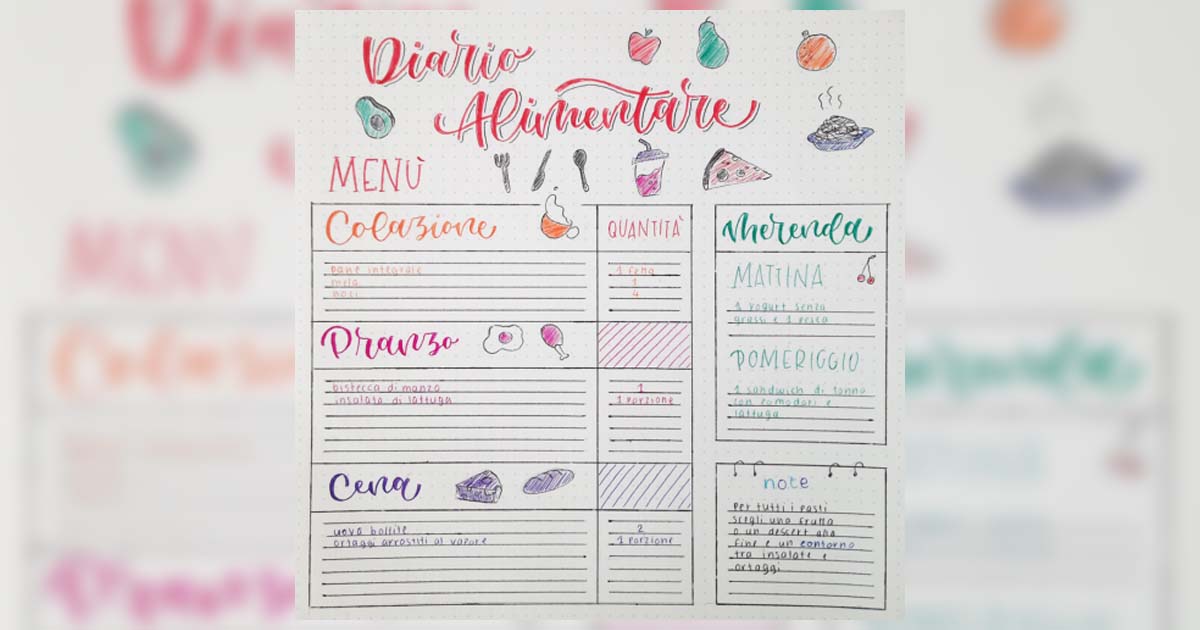 Diario
Alimentare
MENÙ
Colazione
QUANTITÀ
pane integrale 1 fetta
mela 1
noci 4
Pranzo
bistecca di manzo 1
insalata di lattuga 1 porzione
Cena
uova bollite 2
ortaggi arrostiti al vapore 1 porzione
Merenda
MATTINA
1 yogurt senza
grassi e 1 pesca
POMERIGGIO
1 sandwich di tonno
con pomodori e
lattuga
note
per tutti i pasti
scegli una frutta
o un descert alla
fine e un contorno
tra insalate e
ortaggi